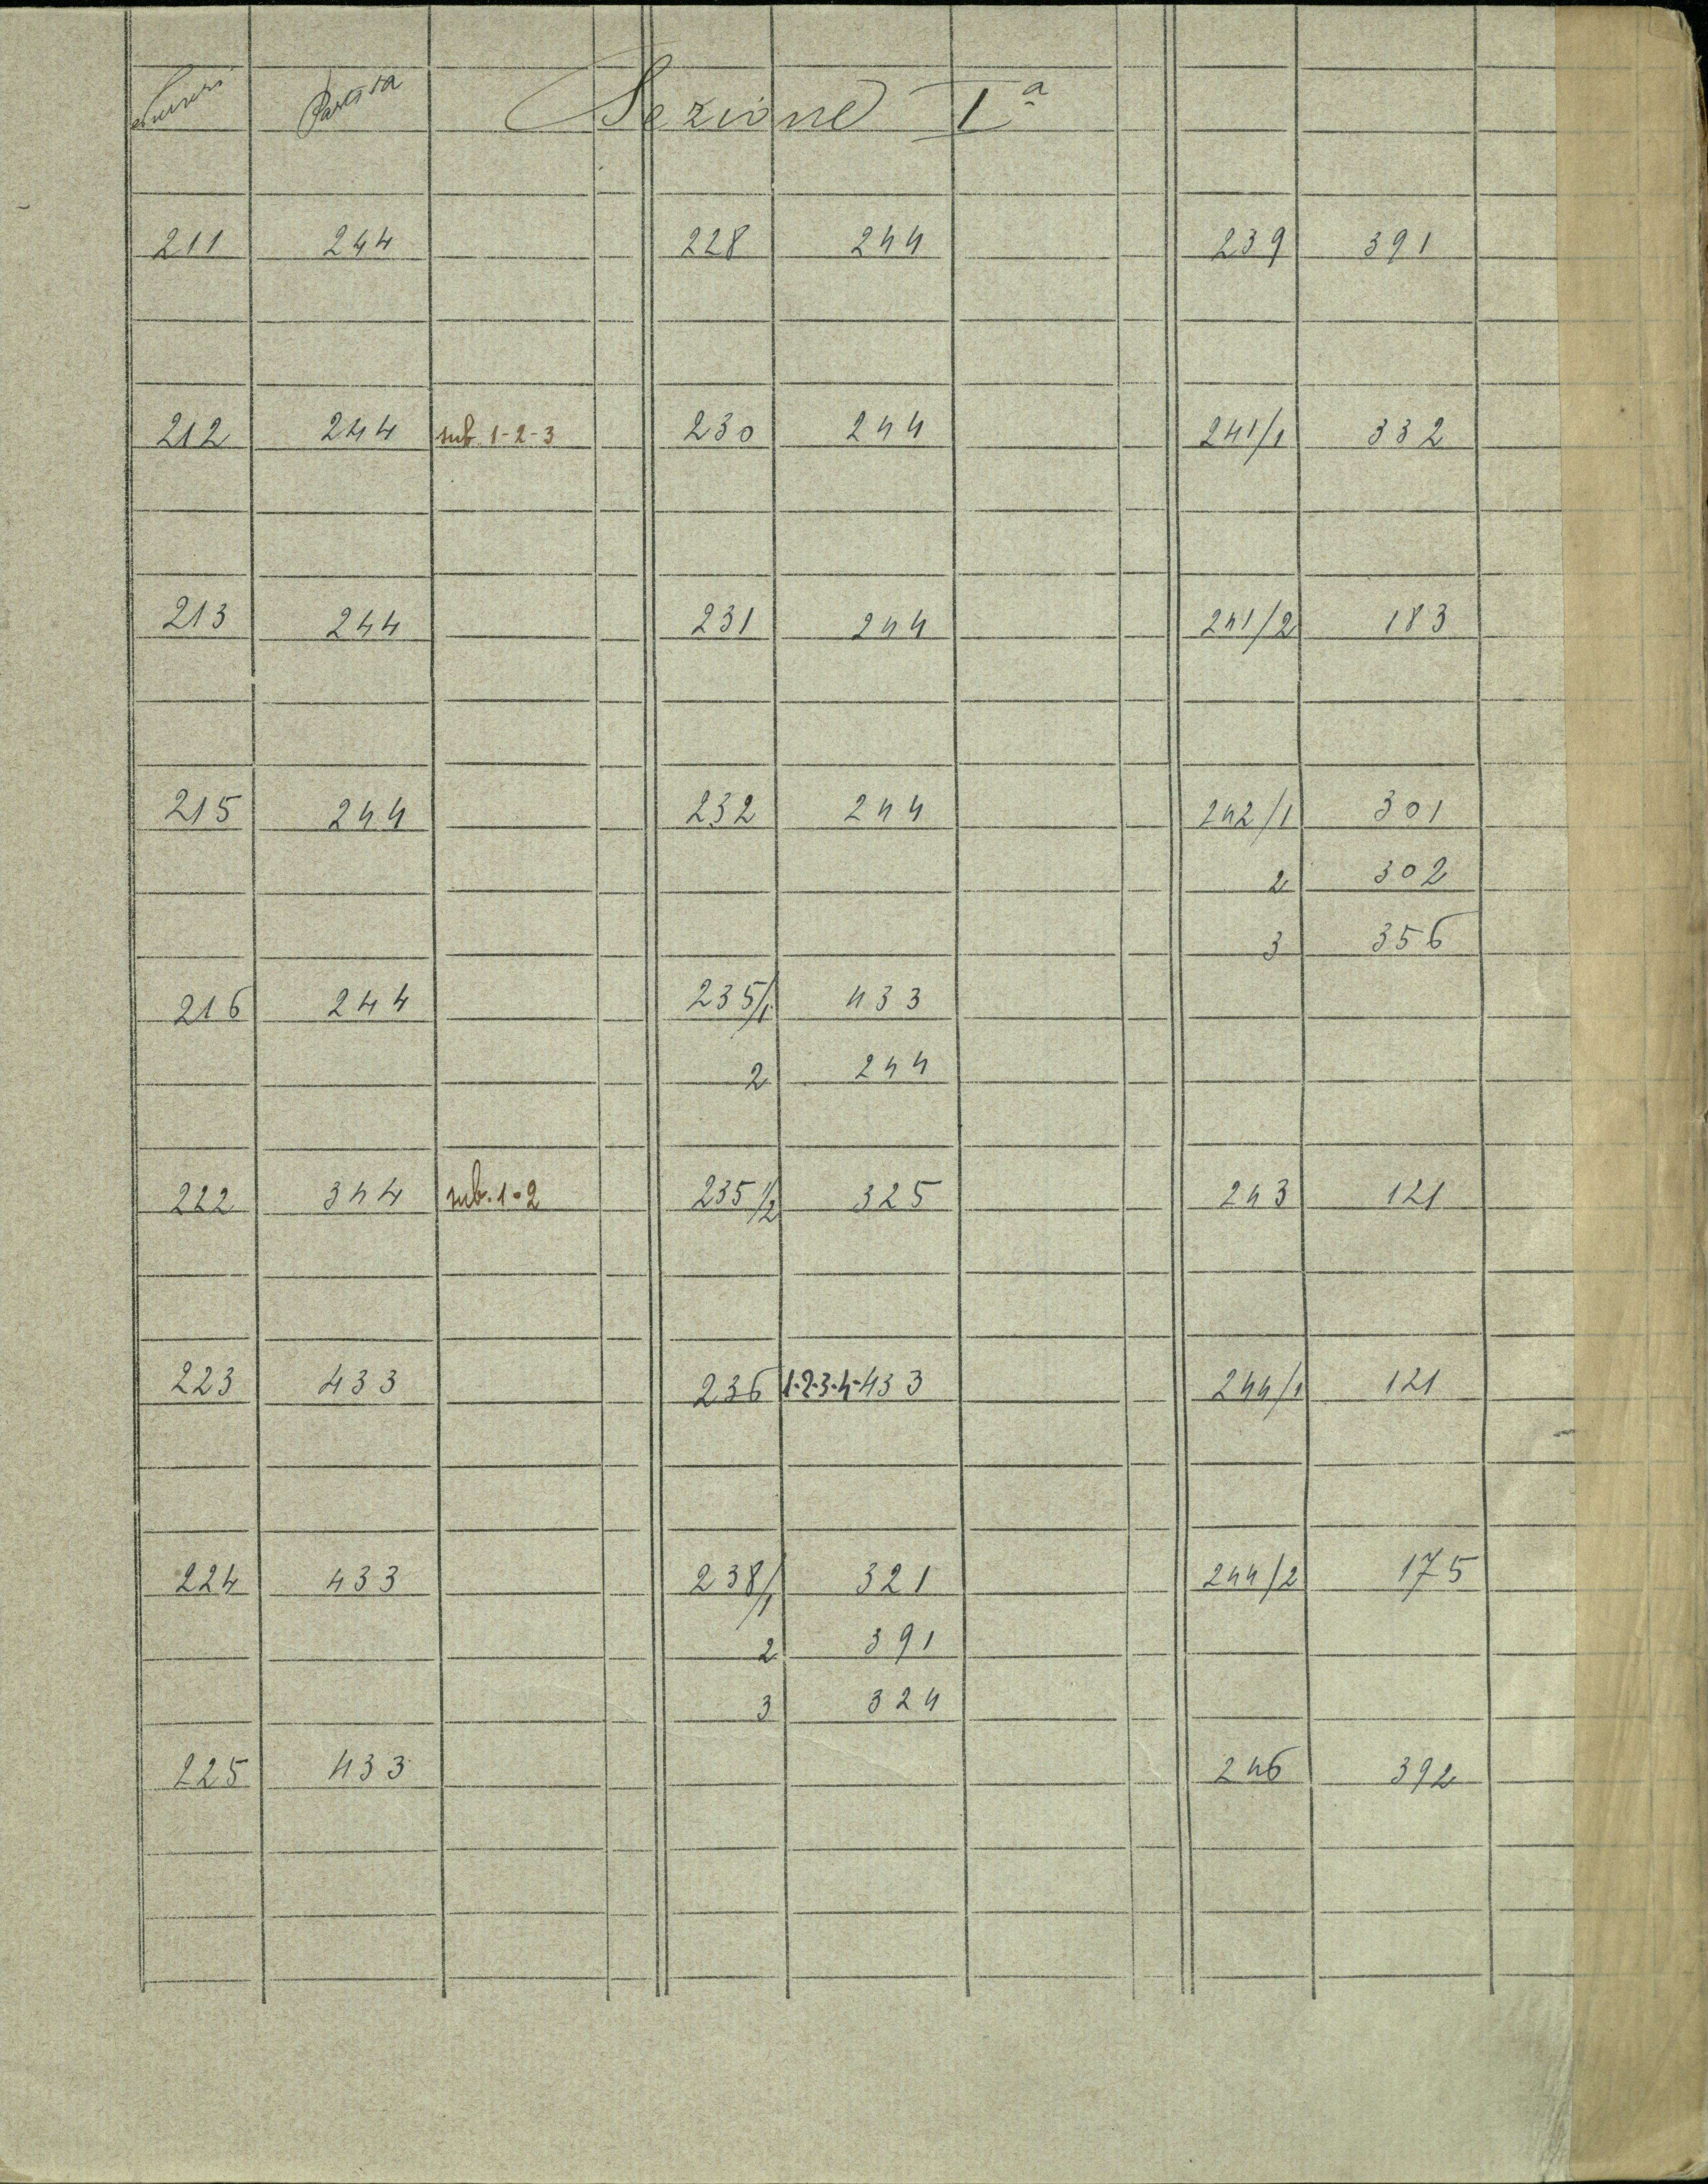 Numeri Partita Sezione Iª
211 244 228 244 239 391
212 244 sub. 1-2-3 230 244 241/1 332
213 244 231 244 241/2 183
215 244 232 244 242/1 301
2 302
3 356
216 244 235/1 433
2 244
222 344 sub. 1-2 235 1/2 325 243 121
223 433 236 1-2-3-4- 433 244/1 121
224 433 238/1 321 244/2 175
2 391
3 324
225 433 246 392